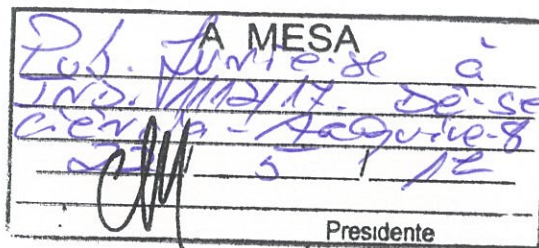 A MESA
Pub. Junte-se à
IND. 1112/17. Dê-se
ciência - Arquive-se
22 5 17
Presidente